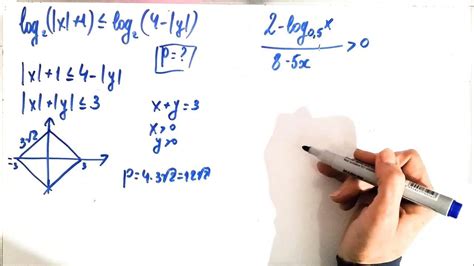 log₂(|x|+1) ≤ log₂(4-|y|)
P=?
|x|+1 ≤ 4-|y|
|x|+|y| ≤ 3
x+y=3
x>0
y>0
3√2
-3
3
P=4·3√2=12√2
2-log₀,₅x
8-5x
>0